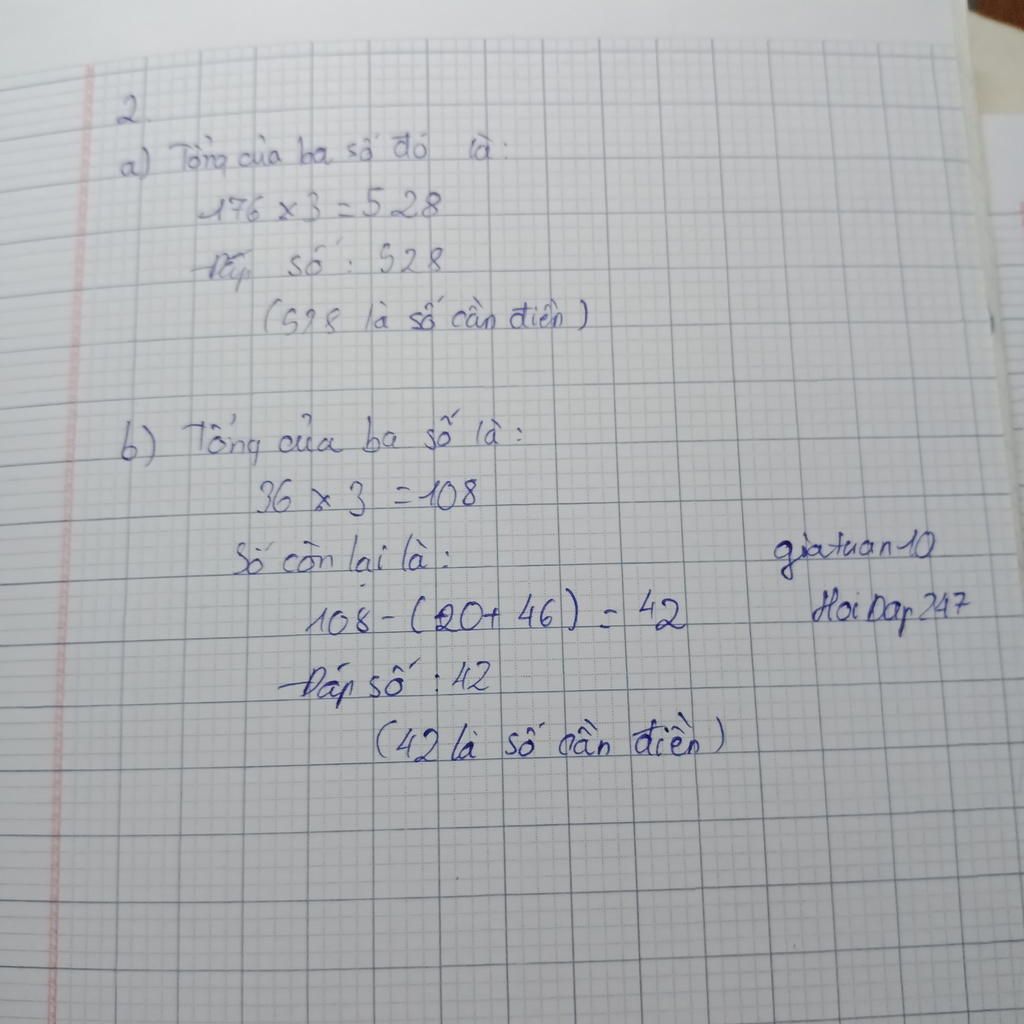 2.
a) Tổng của ba số đó là:
176 x 3 = 528
Đáp số: 528
(528 là số cần điền)
b) Tổng của ba số là:
36 x 3 = 108
Số còn lại là:
108 - (20 + 46) = 42
Đáp số: 42
(42 là số cần điền)
giatuan10
HoiDap247